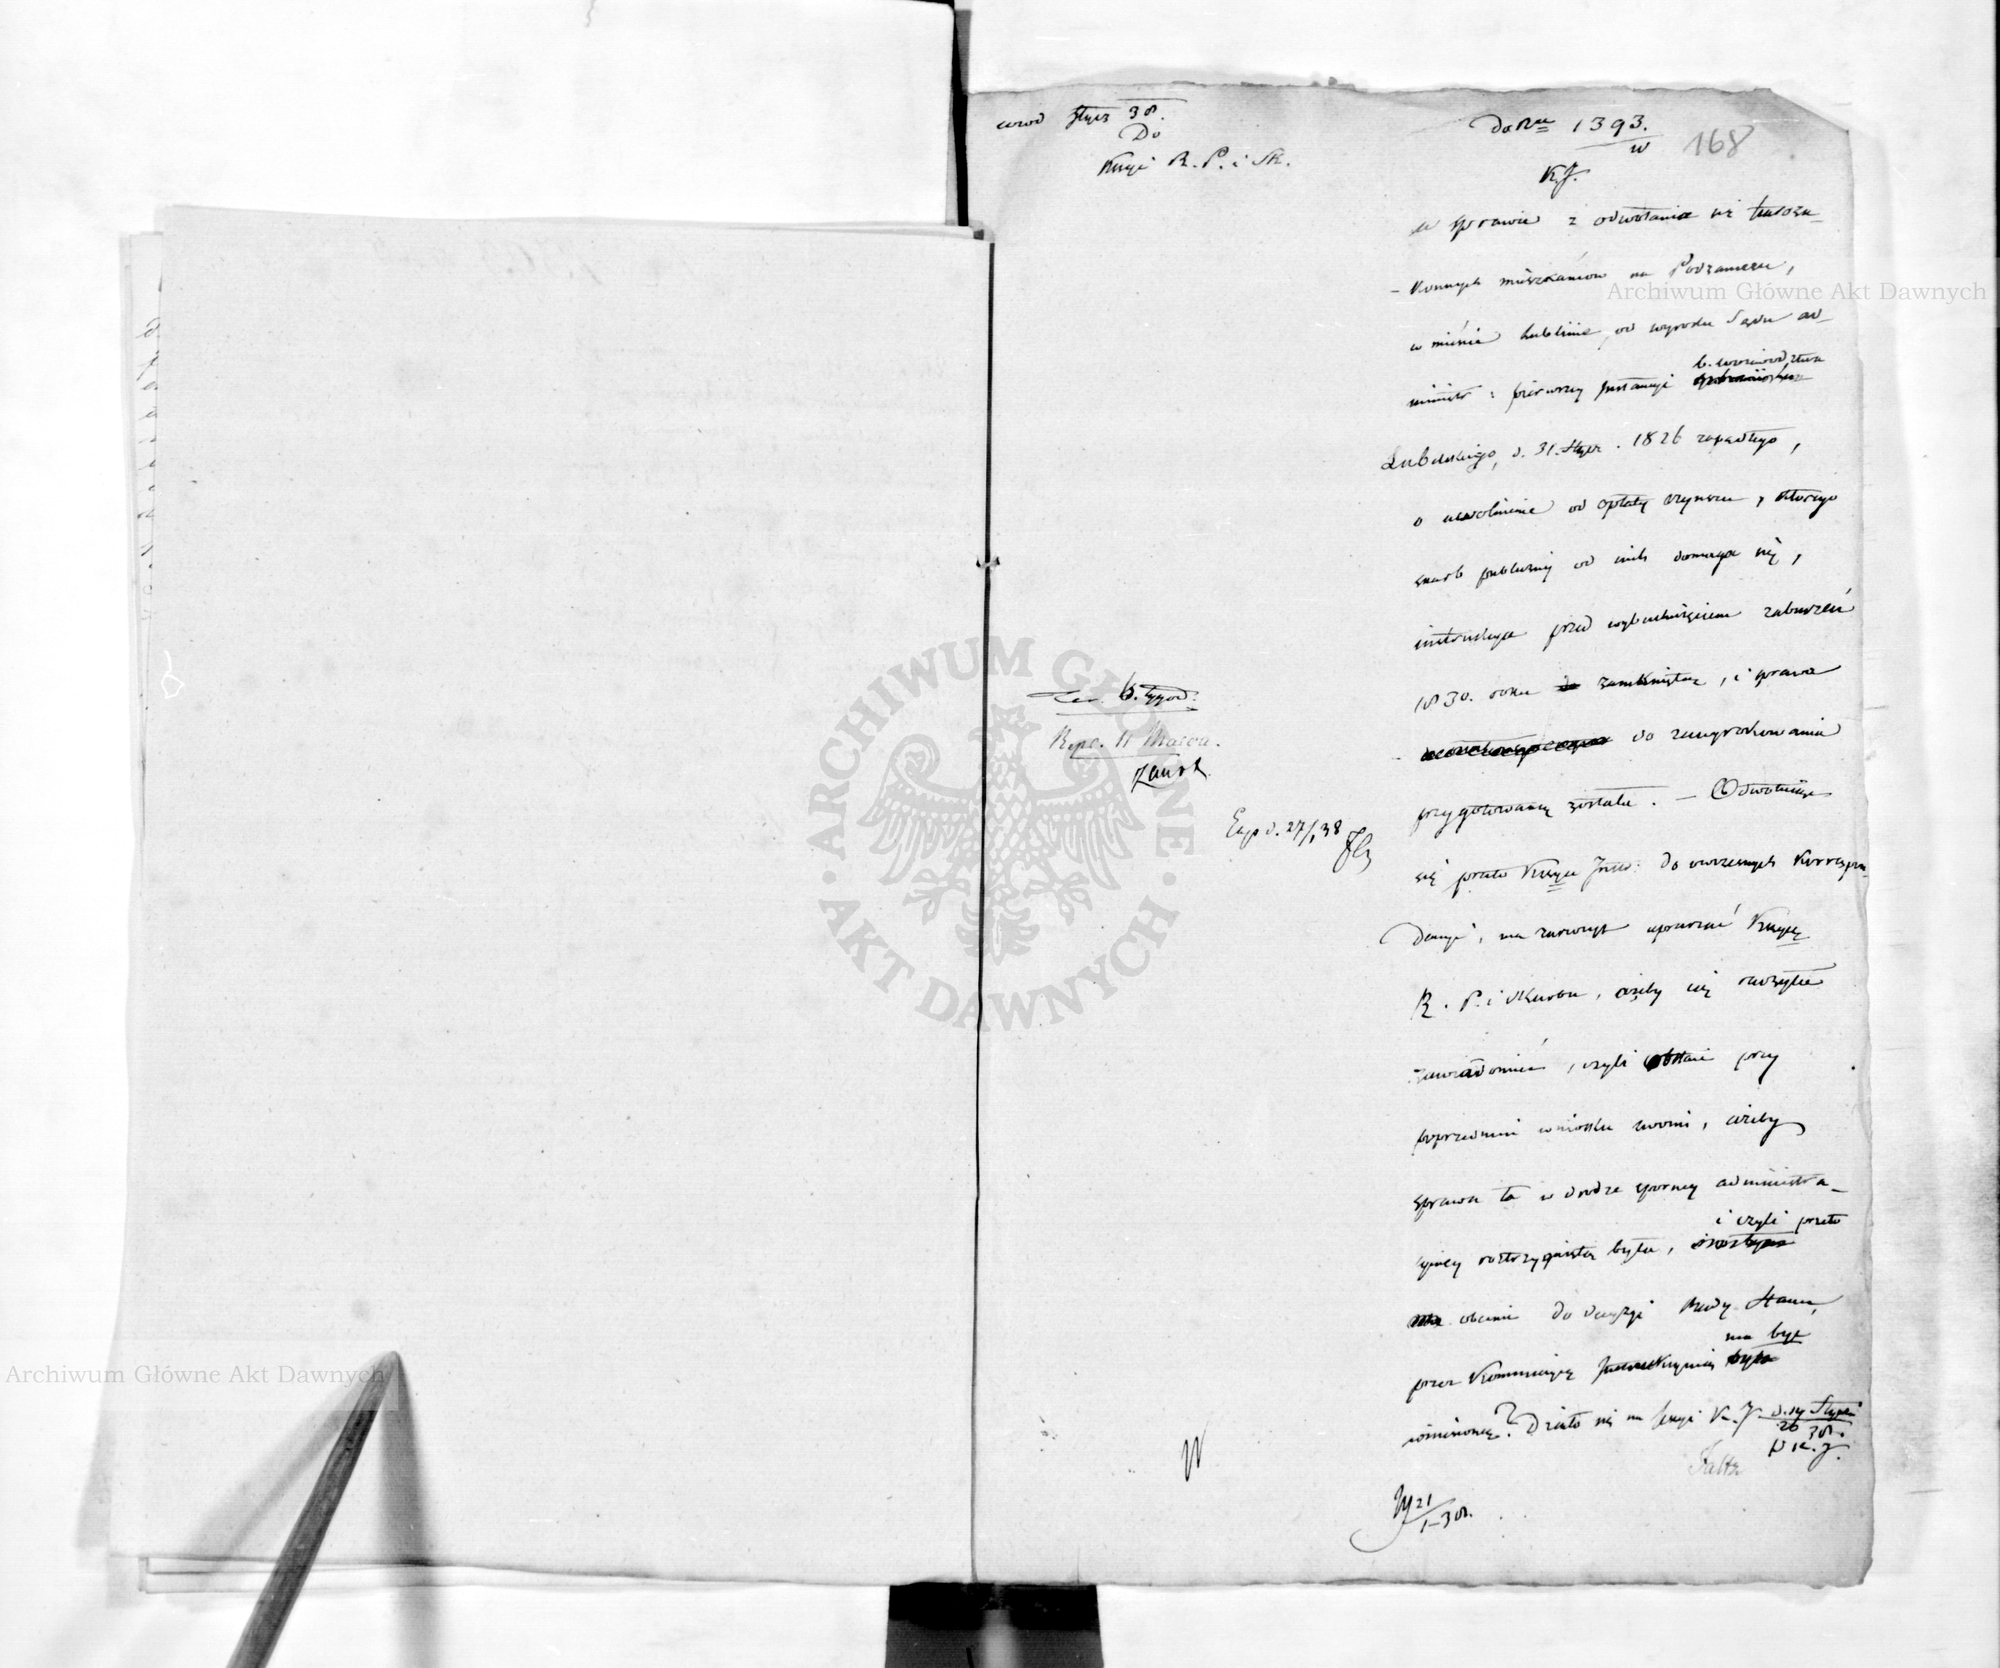 Stycz 38.
Do
Kmyi R. P. i Sk.
Do Nru 1393.
w
168
K. J.
w sprawie z odwołania się starozakonnych
mieszkańców na Podzamczu,
w mieście Lublinie, od wyroku Sądu ad-
ministr: pierwszej Instancyi b. województwa
Lubelskiego, d. 31. Stycz. 1826 zapadłego,
o uwolnienie od opłaty czynszu, którego
skarb publiczny od nich domaga się,
instrukcya przed wybuchnięciem zaburzeń
1830. roku zamkniętą, i sprawa
do zawyrokowania
przygotowaną została. — Odwołując
się przeto Kmya Instr: do owczesnych korrespon-
dencyi, ma zaszczyt upraszać Kmyę
R. P. i Skarbu, ażeby się raczyła
zawiadomić, czyli obstaie przy
poprzednim wniosku swoim, ażeby
sprawa ta w drodze sporney administra-
cyiney rozstrzygniętą była, i czyli przeto
obecnie do decyzyi Rady Stanu,
przez Kommissyę Instrukcyiną ma być
wniesioną? Działo się na Sessyi K. J. d. 14/26 Stycz
38.
b. 4. tygod.
Repr. W Marca.
Exp d. 27/1 38
W
21
1-38.
Archiwum Główne Akt Dawnych
Archiwum Główne Akt Dawnych
ARCHIWUM GŁÓWNE
AKT DAWNYCH